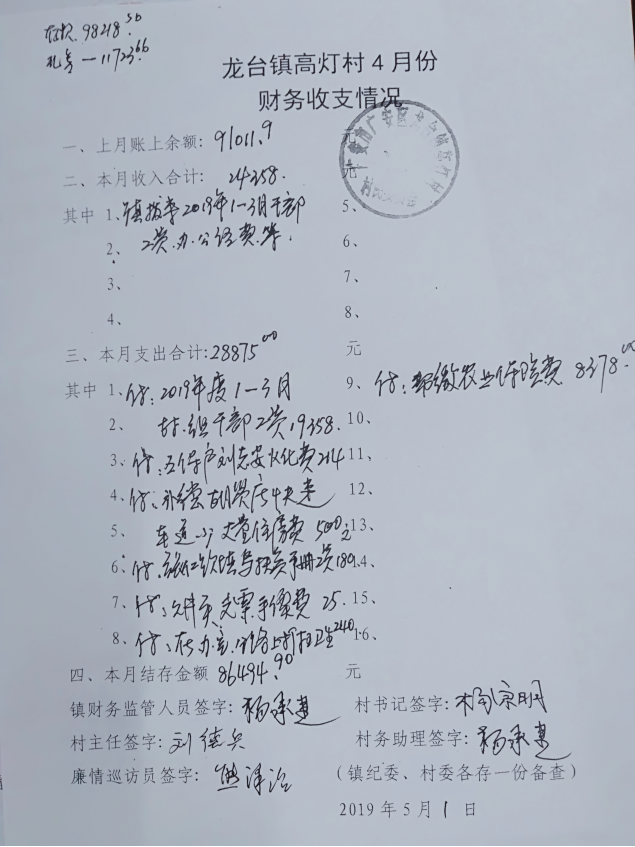 存折.98218.50
扎差-11723.66
龙台镇高灯村4月份
财务收支情况
一、上月账上余额:91011.9 元
二、本月收入合计: 24358. 元
其中 1、镇拨李2019年1-3月干部 5、
2、工资.办公经费等. 6、
3、 7、
4、 8、
三、本月支出合计:28875.00 元
其中 1、付:2019年度1-3月 9、付:代缴农业保险费 8378.00
2、村.组干部工资19358. 10、
3、付:五保户刘志安火化费214 11、
4、付: 12、
5、 车 住房费 500元 13、
6、付: 填写扶贫手册工资180 14、
7、付: 支票手续费 25. 15、
8、付: 打扫卫生240. 16、
四、本月结存金额 86494.90 元
镇财务监管人员签字:杨承建 村书记签字:
村主任签字:刘德兵 村务助理签字:杨承建
廉情巡访员签字:熊泽治 (镇纪委、村委各存一份备查)
2019年5月1日